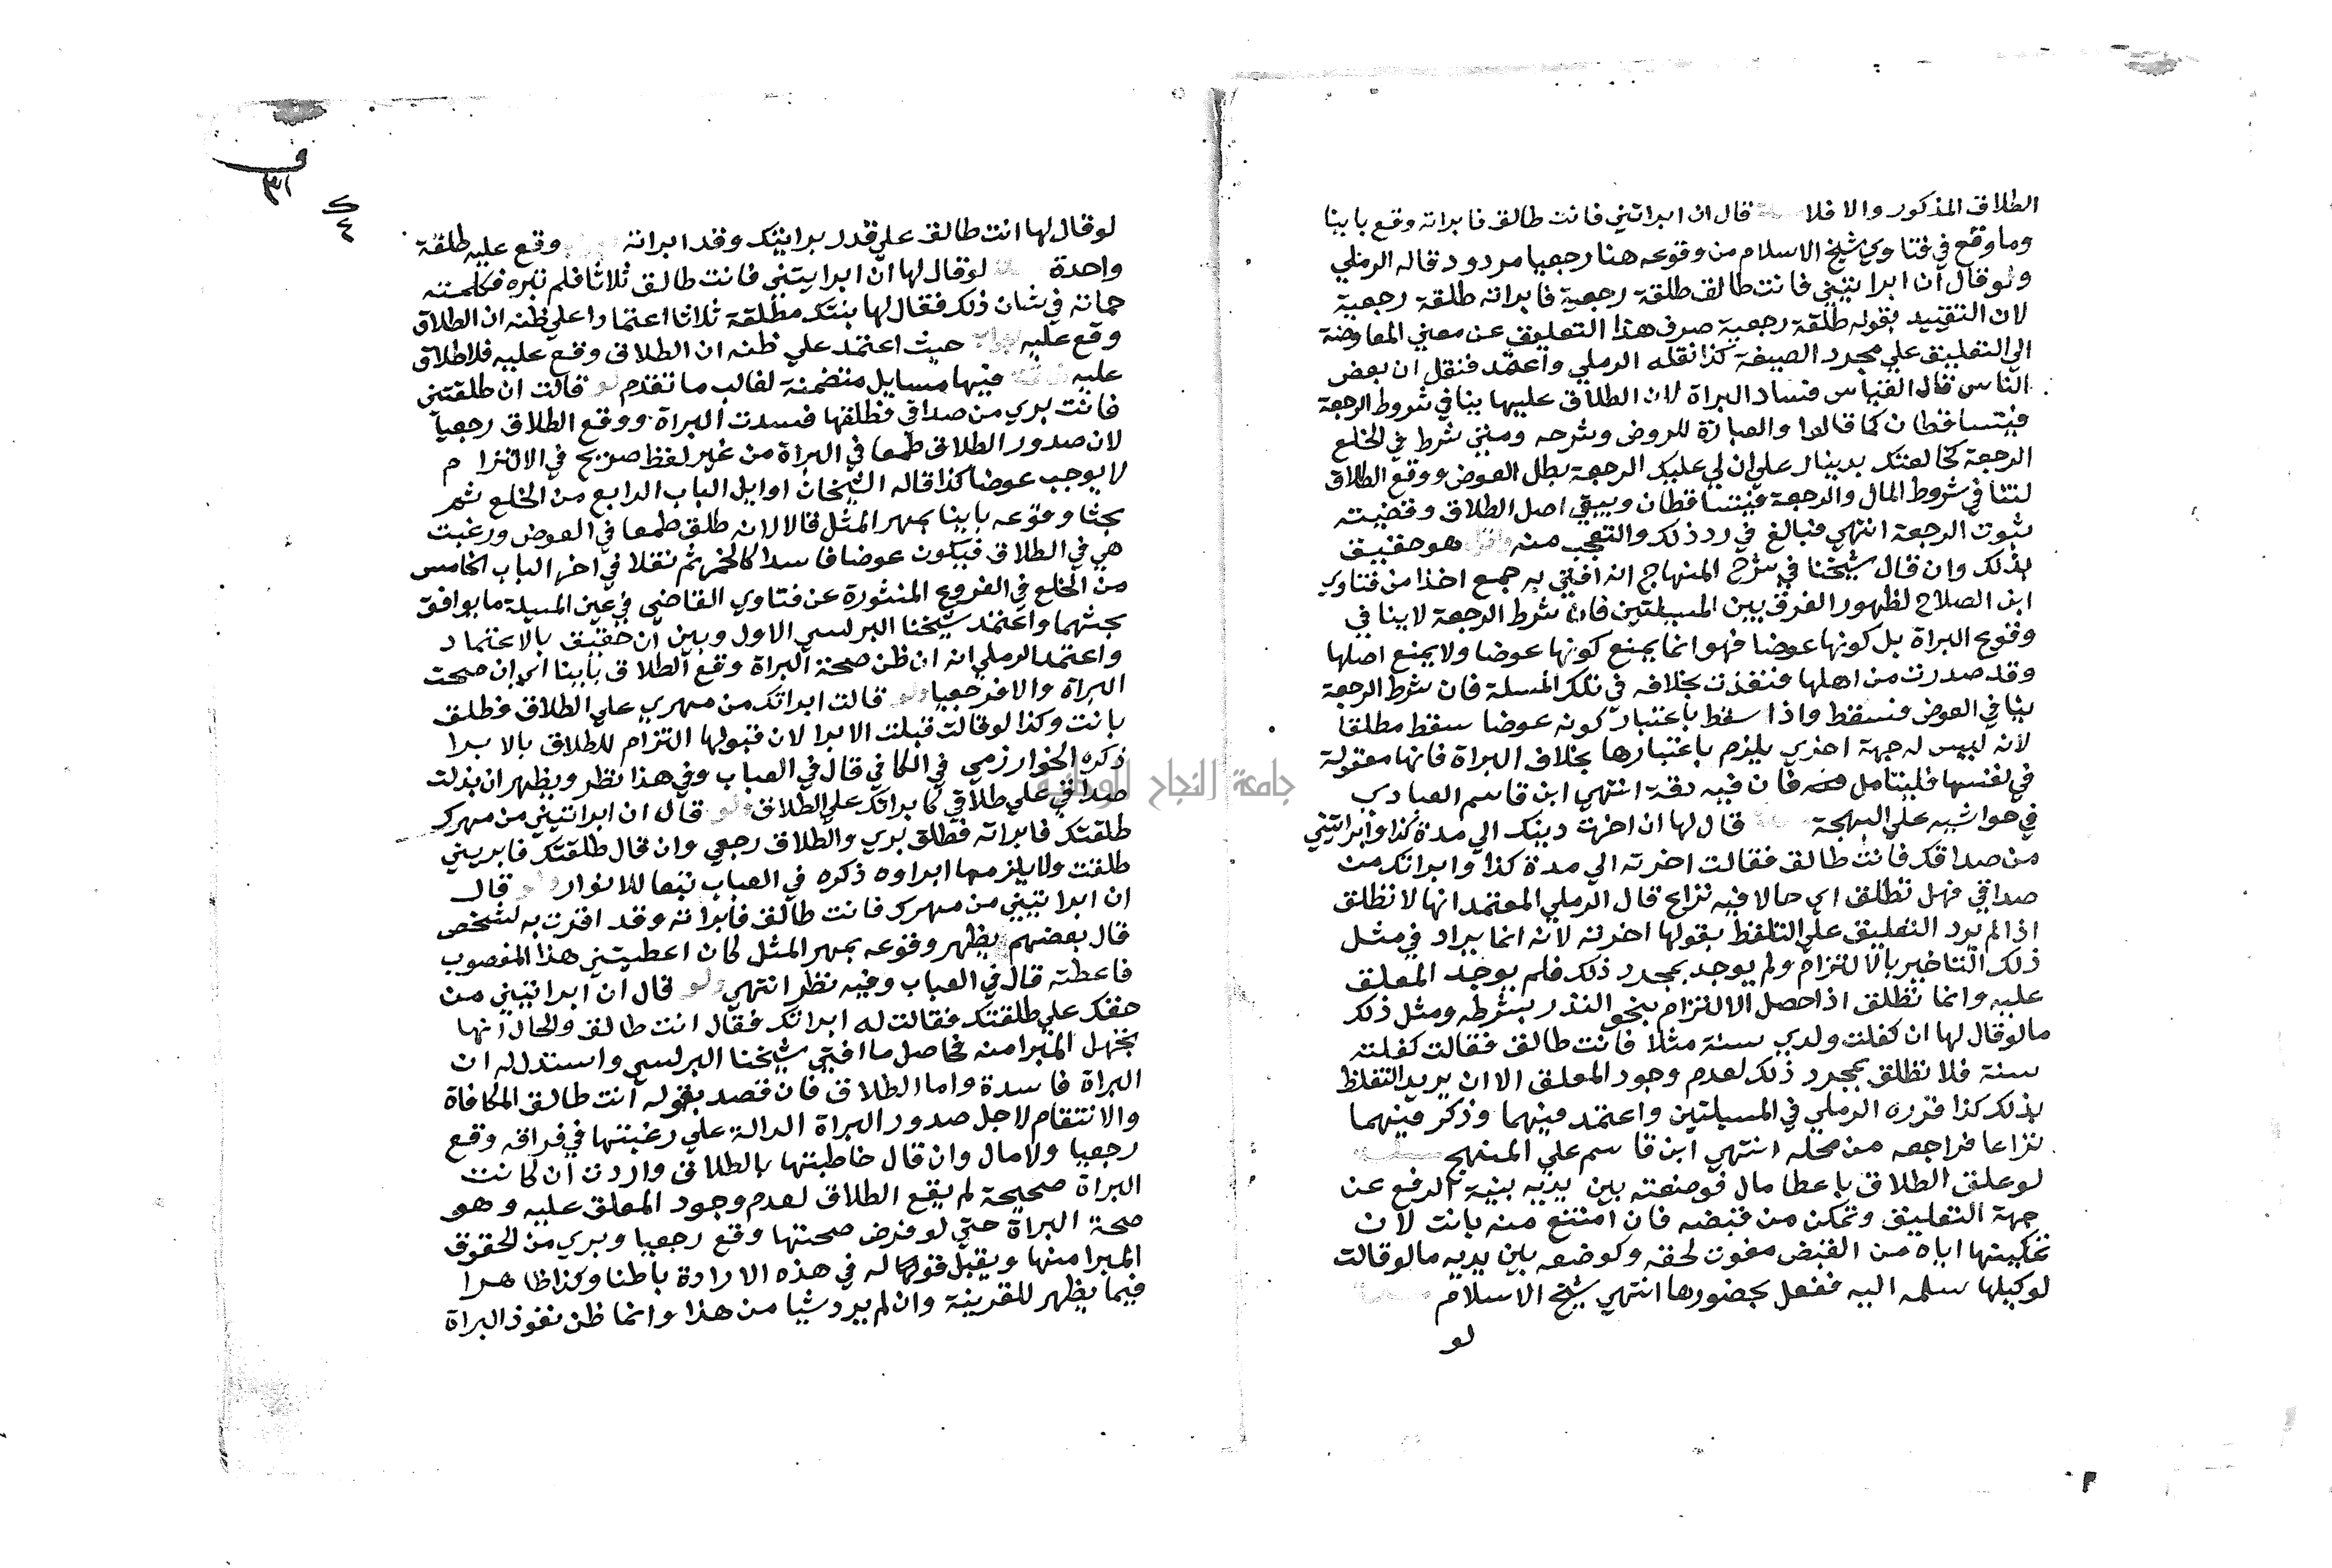 الطلاق المذكور والا فلا قال ان ابراتيني فانت طالق فابراته وقع باينا
وما وقع في فتاوي شيخ الاسلام من وقوعه هنا رجعيا مردود قاله الرملي
ولو قال ان ابراتيني فانت طالق طلقة رجعية فابراته طلقة رجعية
لان التقييد بقوله طلقة رجعية صرف هذا التعليق عن معني المعاوضة
الي التعليق علي مجرد الصيغة كذا نقله الرملي واعتمد فنقل ان بعض
الناس قال القياس فساد البراة لان الطلاق عليها ينافي شروط الرجعة
فيتساقطان كما قالوا والعبارة للروض وشرحه ومتي شرط في الخلع
الرجعة كخالعتك بدينار علي ان لي عليك الرجعة بطل العوض ووقع الطلاق
لتنافي شروط المال والرجعة فيتساقطان ويبقي اصل الطلاق وقضيته
ثبوت الرجعة انتهي فبالغ في رد ذلك والتعجب منه هو حقيق
بذلك وان قال شيخنا في شرح المنهاج انه افتي به جمع اخذا من فتاوي
ابن الصلاح لظهور الفرق بين المسيلتين فان شرط الرجعة لا ينافي
وقوع البراة بل كونها عوضا فهو انما يمنع كونها عوضا ولا يمنع اصلها
وقد صدرت من اهلها فنفذت بخلافه في تلك المسلة فان شرط الرجعة
ينافي العوض فسقط واذا سقط باعتبار كونه عوضا سقط مطلقا
لانه ليس له جهة اخري يلزم باعتبارها بخلاف البراة فانها معقولة
في نفسها فليتامل فان فيه دقة انتهي ابن قاسم العبادي
في حواشيه علي البهجة قال لها ان اخرت دينك الي مدة كذا وابراتيني
من صداقك فانت طالق فقالت اخرته الي مدة كذا وابراتك من
صداقي فهل تطلق اي حالا فيه نزاع قال الرملي المعتمد انها لا تطلق
اذا لم يرد التعليق علي التلفظ بقولها اخرته لانه انما يراد في مثل
ذلك التاخير بالالتزام ولم يوجد بمجرد ذلك فلم يوجد المعلق
عليه وانما تطلق اذا حصل الالتزام بنحو النذر بشرطه ومثل ذلك
مالو قال لها ان كفلت ولدي سنة مثلا فانت طالق فقالت كفلته
سنة فلا تطلق بمجرد ذلك لعدم وجود المعلق الا ان يريد التلفظ
بذلك كذا قرره الرملي في المسيلتين واعتمد فيهما وذكر فيهما
نزاعا فراجعه من محله انتهي ابن قاسم علي المنهج
لو علق الطلاق باعطا مال فوضعته بين يديه بنية الدفع عن
جهة التعليق وتمكن من قبضه فان امتنع منه بانت لان
تمكينها اياه من القبض مفوت لحقه وكوضعه بين يديه مالو قالت
لوكيلها سلمه اليه ففعل بحضورها انتهي شيخ الاسلام
لو
لو قال لها انت طالق علي قدر برايتك وقد ابراته وقع عليه طلقة
واحدة لو قال لها ان ابرايتني فانت طالق ثلاثا فلم تبره فكلمته
حماته في شان ذلك فقال لها بنتك مطلقة ثلاثا اعتمادا علي ظنه ان الطلاق
وقع عليه حيث اعتمد علي ظنه ان الطلاق وقع عليه فلا طلاق
عليه فيها مسايل متضمنة لغالب ما تقدم لو قالت ان طلقتني
فانت بري من صداقي فطلقها فسدت البراة ووقع الطلاق رجعيا
لان صدور الطلاق طمعا في البراة من غير لفظ صريح في الالتزام
لا يوجب عوضا كذا قاله الشيخان اوايل الباب الرابع من الخلع ثم
بحثا وقوعه باينا بمهر المثل قالا لانه طلق طمعا في العوض ورغبت
هي في الطلاق فيكون عوضا فاسدا كالخمر ثم نقلا في اخر الباب الخامس
من الخلع في الفروع المنثورة عن فتاوي القاضي في عين المسيلة ما يوافق
بحثهما واعتمد شيخنا البرلسي الاول وبين ان حقيق بالاعتماد
واعتمد الرملي انه ان ظن صحة البراة وقع الطلاق باينا اي ان صحت
البراة والا فرجعيا ولو قالت ابراتك من مهري علي الطلاق فطلق
بانت وكذا لو قالت قبلت الابرا لان قبولها التزام للطلاق بالابرا
ذكره الخوارزمي في الكافي قال في العباب وفي هذا نظر ويظهر ان بذلت
صداقي علي طلاقي كابراتك علي الطلاق ولو قال ان ابراتيني من مهرك
طلقتك فابراته فطلق بري والطلاق رجعي وان قال طلقتك فابريني
طلقت ولا يلزمها ابراوه ذكره في العباب تبعا للانوار ولو قال
ان ابراتيني من مهرك فانت طالق فابراته وقد اقرت به لشخص
قال بعضهم يظهر وقوعه بمهر المثل كان اعطيتني هذا المغصوب
فاعطته قال في العباب وفيه نظر انتهي ولو قال ان ابراتيني من
حقك علي طلقتك فقالت له ابراتك فقال انت طالق والحال انها
تجهل المبرا منه فحاصل ما افتي شيخنا البرلسي واستدل له ان
البراة فاسدة واما الطلاق فان قصد بقوله انت طالق المكافاة
والانتقام لاجل صدور البراة الدالة علي رغبتها في فراقه وقع
رجعيا ولا مال وان قال خاطبتها بالطلاق واردت ان كانت
البراة صحيحة لم يقع الطلاق لعدم وجود المعلق عليه وهو
صحة البراة حتي لو فرض صحتها وقع رجعيا وبري من الحقوق
المبرا منها ويقبل قوله في هذه الارادة باطنا وكذا ظاهرا
فيما يظهر للقرينة وان لم يرد شيا من هذا وانما ظن نفوذ البراة
جامعة النجاح الوطنية